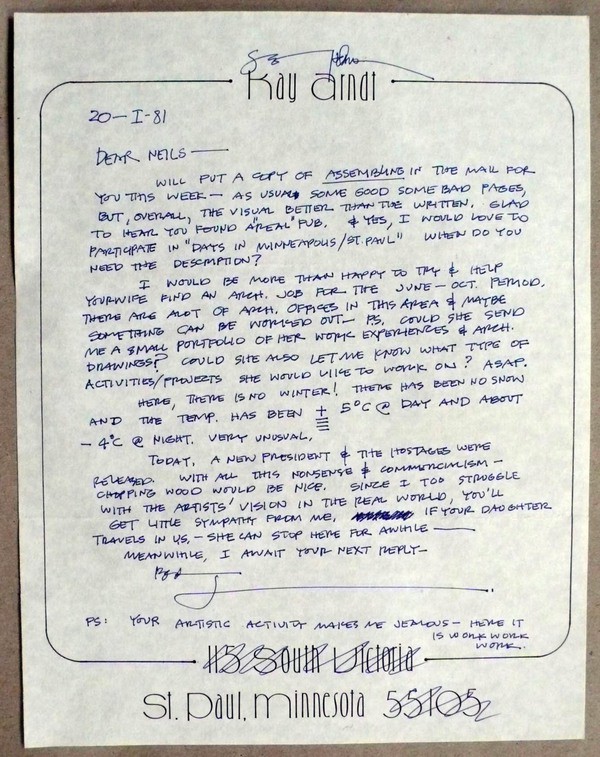 Kay Arndt
20-I-81
DEAR NEILS —
WILL PUT A COPY OF ASSEMBLING IN THE MAIL FOR
YOU THIS WEEK — AS USUAL, SOME GOOD SOME BAD PAGES,
BUT, OVERALL, THE VISUAL BETTER THAN THE WRITTEN. GLAD
TO HEAR YOU FOUND A "REAL" PUB. & YES, I WOULD LOVE TO
PARTICIPATE IN "DAYS IN MINNEAPOLIS/ST. PAUL" WHEN DO YOU
NEED THE DESCRIPTION?
I WOULD BE MORE THAN HAPPY TO TRY & HELP
YOUR WIFE FIND AN ARCH. JOB FOR THE JUNE — OCT. PERIOD.
THERE ARE ALOT OF ARCH. OFFICES IN THIS AREA & MAYBE
SOMETHING CAN BE WORKED OUT — P.S. COULD SHE SEND
ME A SMALL PORTFOLIO OF HER WORK EXPERIENCES & ARCH.
DRAWINGS? COULD SHE ALSO LET ME KNOW WHAT TYPE OF
ACTIVITIES/PROJECTS SHE WOULD LIKE TO WORK ON? ASAP.
HERE, THERE IS NO WINTER! THERE HAS BEEN NO SNOW
AND THE TEMP. HAS BEEN + 5°C @ DAY AND ABOUT
- 4°C @ NIGHT. VERY UNUSUAL.
TODAY, A NEW PRESIDENT & THE HOSTAGES WERE
RELEASED. WITH ALL THIS NONSENSE & COMMERCIALISM —
CHOPPING WOOD WOULD BE NICE. SINCE I TOO STRUGGLE
WITH THE ARTISTS' VISION IN THE REAL WORLD, YOU'LL
GET LITTLE SYMPATHY FROM ME. IF YOUR DAUGHTER
TRAVELS IN U.S. — SHE CAN STOP HERE FOR AWHILE —
MEANWHILE, I AWAIT YOUR NEXT REPLY —
PS: YOUR ARTISTIC ACTIVITY MAKES ME JEALOUS — HERE IT
IS WORK WORK
WORK.
115 South Victoria
St. Paul, Minnesota 55105